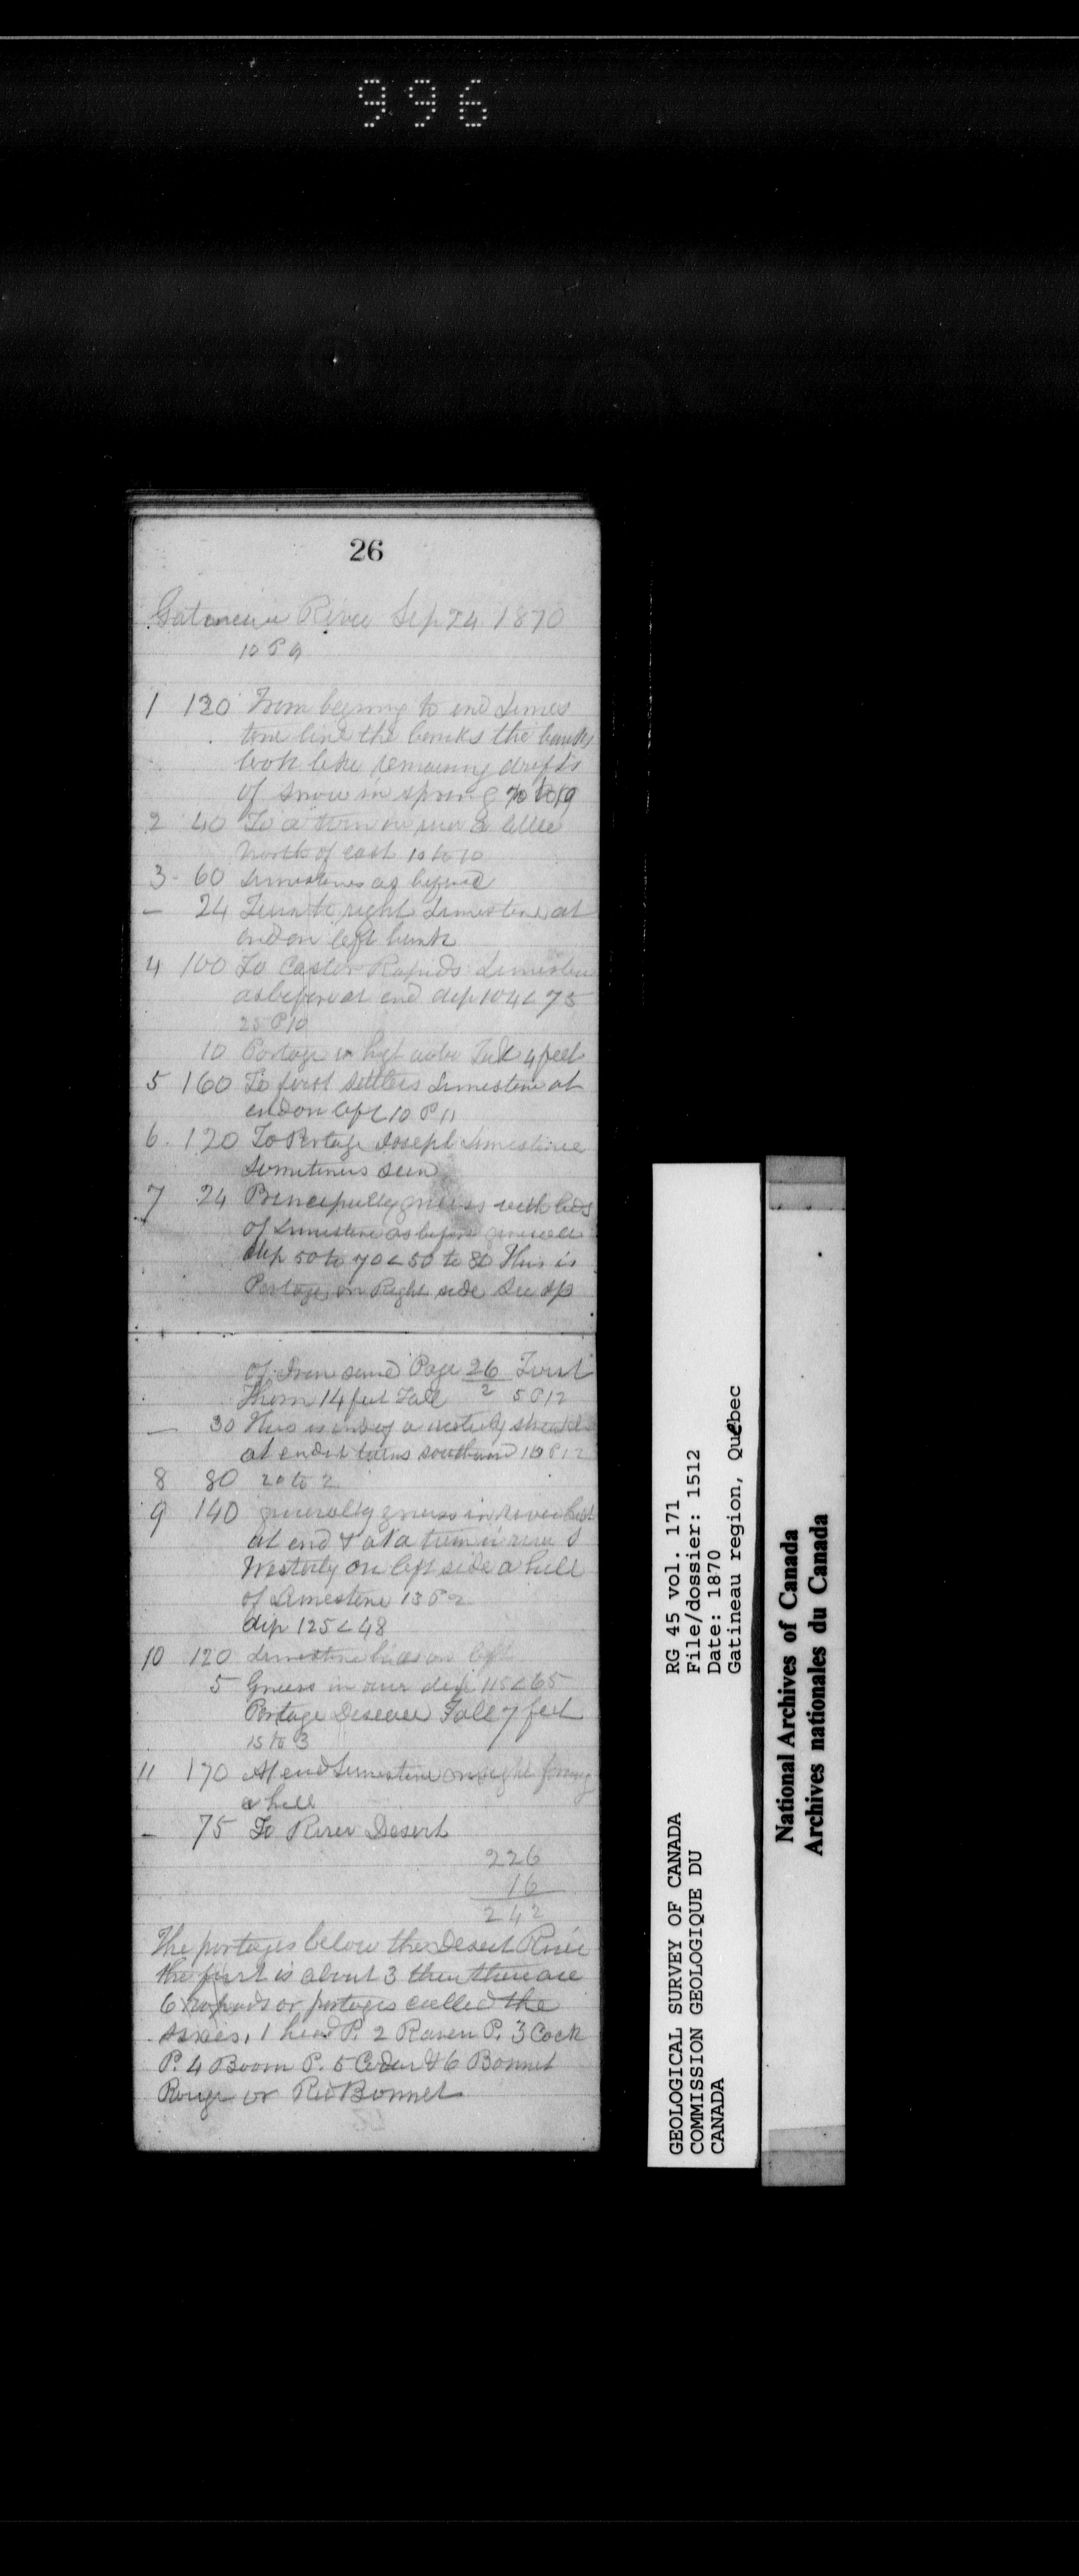 996
26
Gatineau River Sep 24 1870
10 P 9
1 120 From begining to end Limes
tone line the banks the banks
look like remaining drifts
of snow in spring
2 40 To a turn in river a little
North of east 10 to 10
3 - 60 Limestones as before
— 24 Turn to right Limestone at
end on left bank
4 100 To Castor Rapids Limestone
as before at end dip 104 < 75
25 P 10
10 Portage in high water Fall 4 feet
5 160 To first settlers Limestone at
end on left 10 P 11
6 120 To Portage Joseph Limestone
sometimes seen
7 24 Principally gneiss with beds
of Limestone as before general
dip 50 to 70 < 50 to 80 This is
Portage on Right side See Sp
of Iron sand Page 26/2 Fall
14 feet Fall 5 P 12
— 30 This is a westerly
at end it turns southern 10 P 12
8 80 20 to 2
9 140 generally gneiss in River bed
at end & at a turn in river
Westerly on left side a hill
of Limestone 13 P 2
dip 125 < 48
10 120 Limestone beds on left
5 Gneiss in river dip 115 < 65
Portage Fall 7 feet
15 to 3
11 170 At end Limestone on right forming
a hill
— 75 To River Desert
226
16
242
The portages below the Desert River
the first is about 3 then there are
6 rapids or portages called the
1 head P. 2 Raven P. 3 Cock
P. 4 Boom P. 5 Ceder & 6 Bonnet
Rouge or Red Bonnet
GEOLOGICAL SURVEY OF CANADA
COMMISSION GEOLOGIQUE DU
CANADA
RG 45 vol. 171
File/dossier: 1512
Date: 1870
Gatineau region, Québec
National Archives of Canada
Archives nationales du Canada